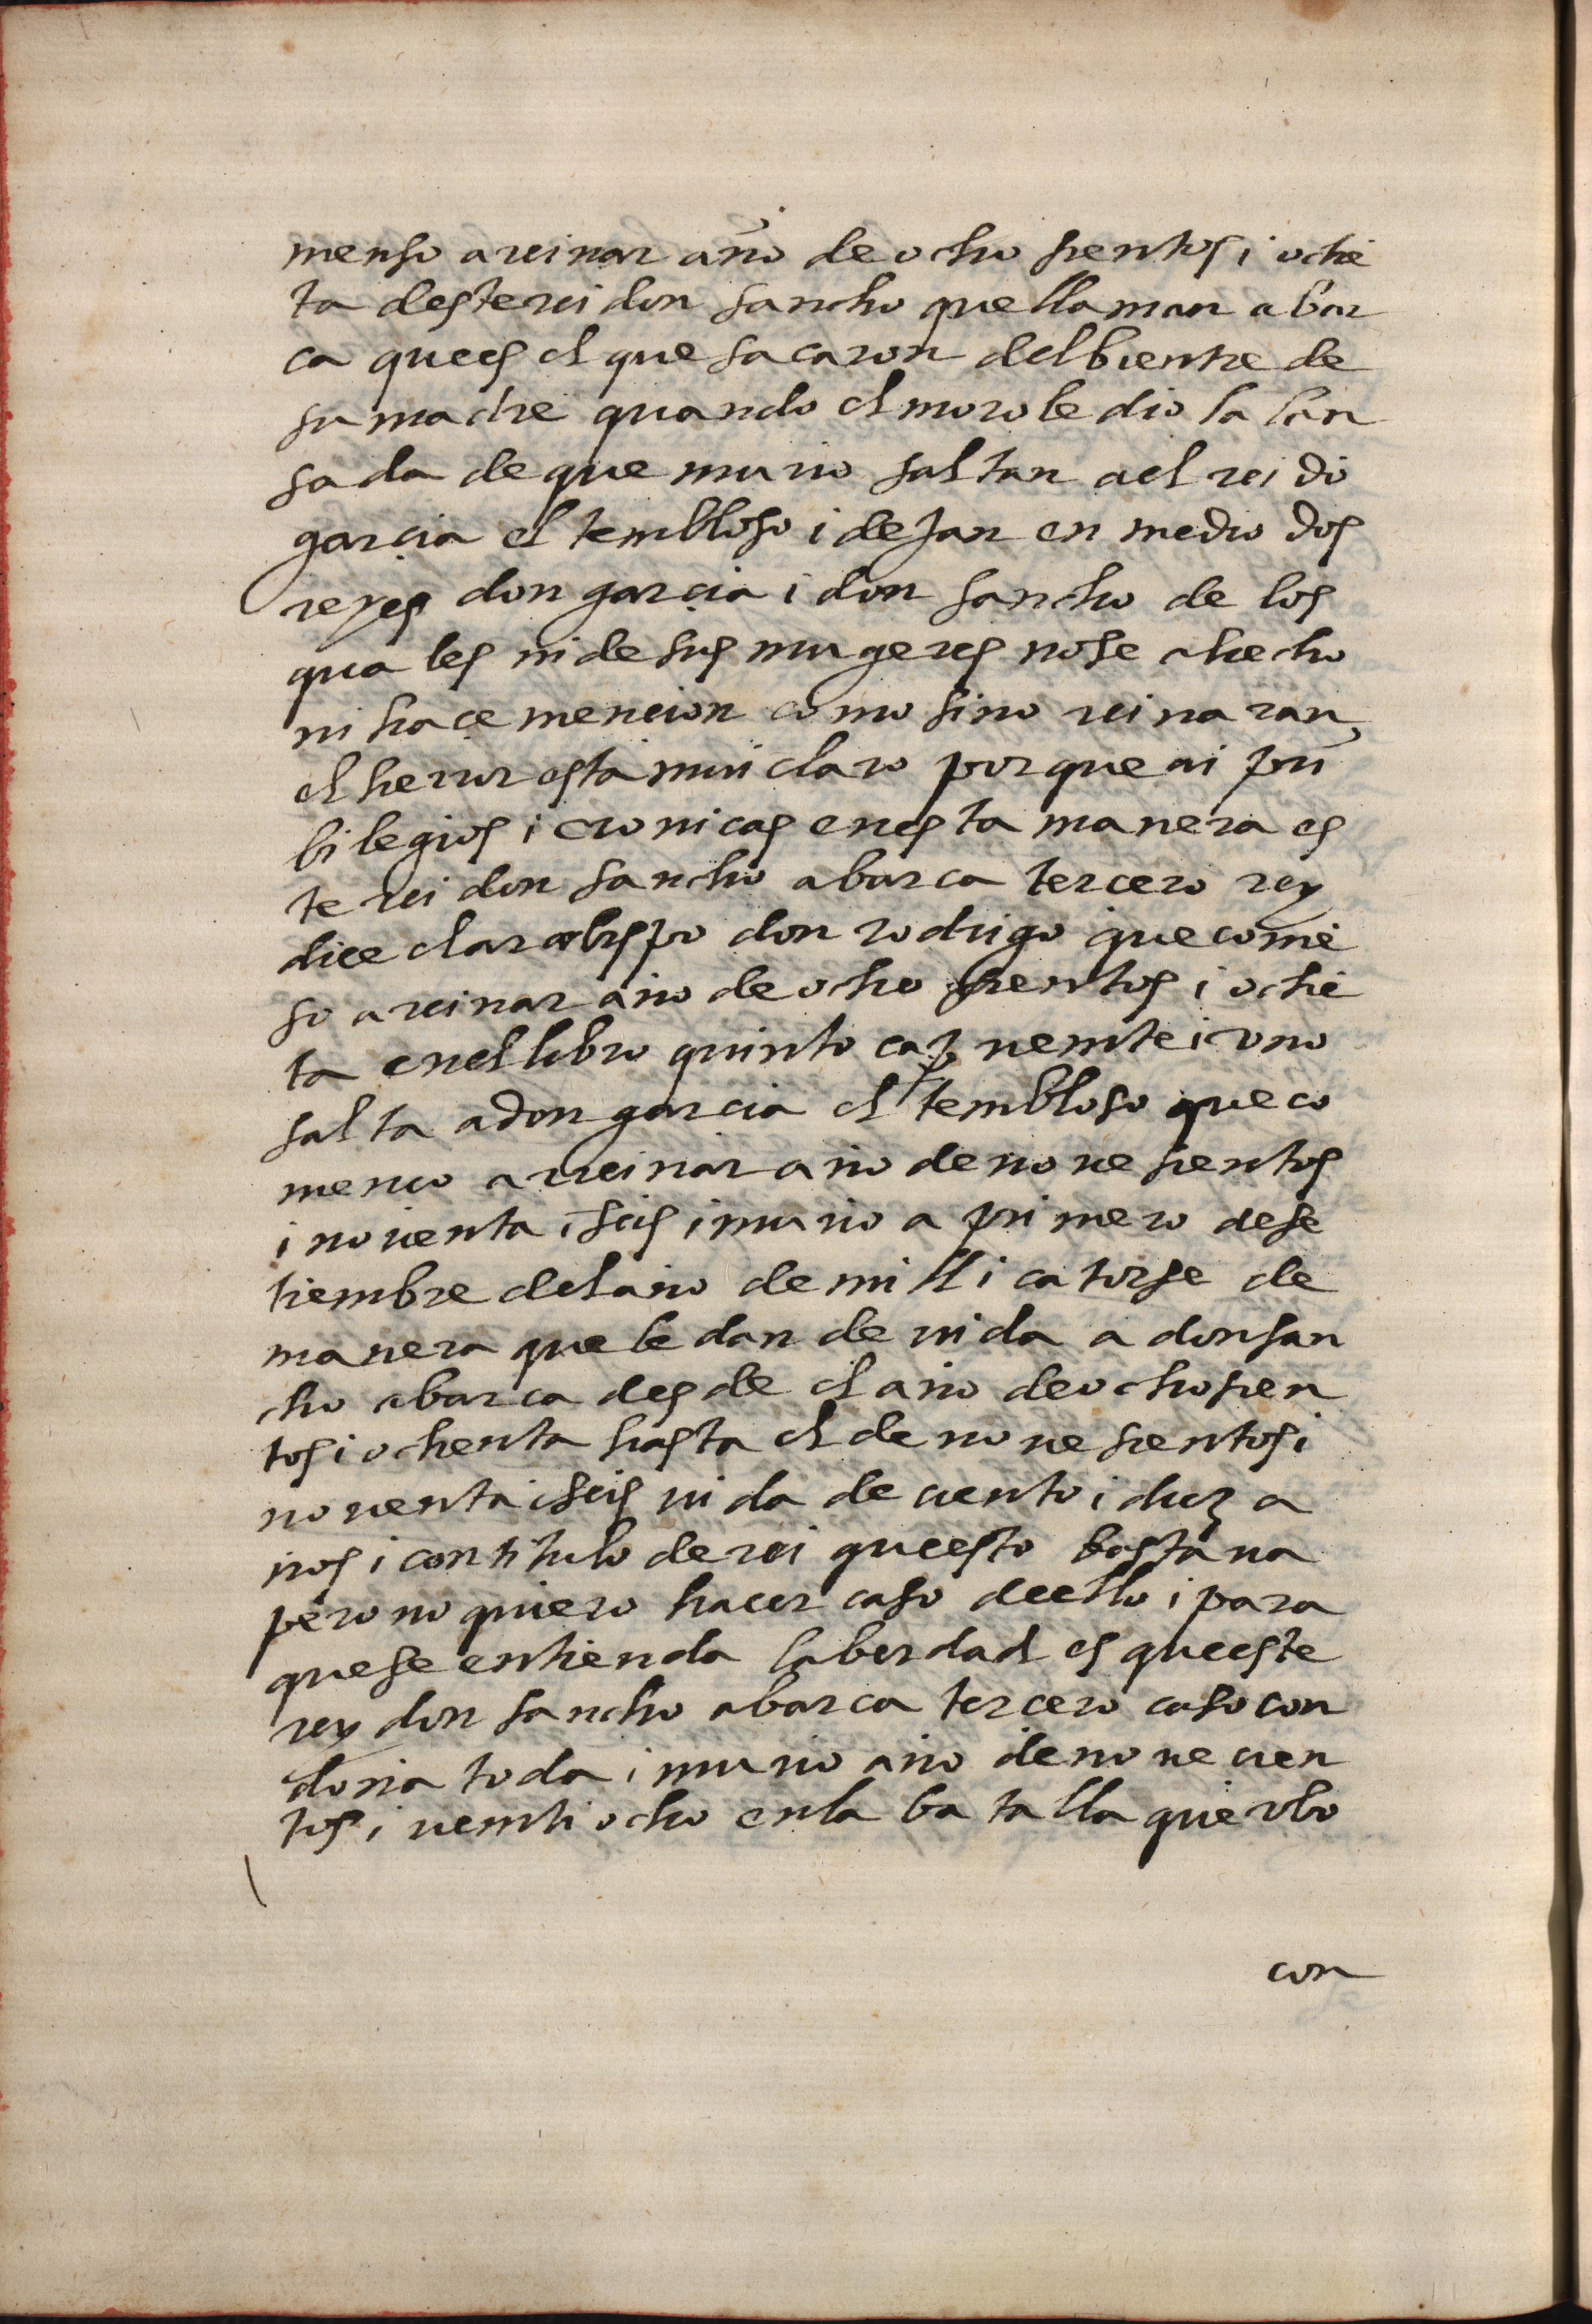 menso a reinar año de ocho sientos i oche
ta deste rei don sancho que llaman abar
ca que es el que sacaron del bientre de
su madre quando el moro le dio la lan
sada de que murio saltan a el rei dō
garcia el tembloso i dejan en medio dos
reyes don garcia i don sancho de los
quales ni de sus mugeres no se a hecho
ni hace mencion como si no reinaran
el herror esta mui claro porque ai pri
bilegios i cronicas en esta manera es
te rei don sancho abarca tercero rey
dice el arcobispo don rodrigo que come
so a reinar año de ocho sientos i oche
ta en el libro quinto cap venite i uno
salta a don garcia el tembloso que co
menco a rreinar año de nove sientos
i noventa i seis i murio a primero de se
tiembre del año de mill i catorse de
manera que le dan de vida a don san
cho abarca des de el año de ocho sien
tos i ochenta hasta el de nove sientos i
noventa i seis vida de ciento i diez a
ños i con titulo de rei que esto bastava
pero no quiero hacer caso de ello i para
que se entienda la berdad es que este
rey don sancho abarca tercero caso con
doña toda i murio año de nove cien
tos i venti ocho en la batalla que vbo
con